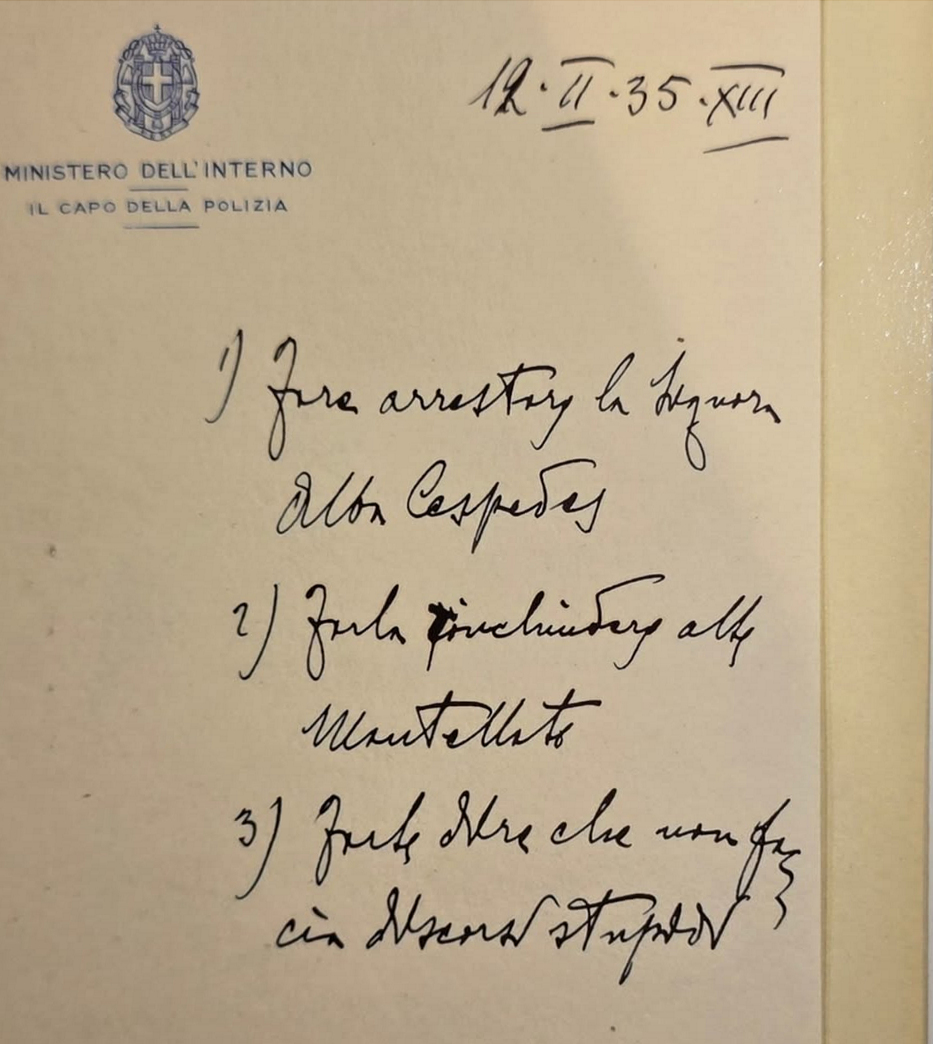 12·II·35·XIII
MINISTERO DELL'INTERNO
IL CAPO DELLA POLIZIA
1) Fare arrestare la Signora
Alba Cespedes
2) Farla rinchiudere alle
Mantellate
3) Farle dire che non fac
cia discorsi stupidi